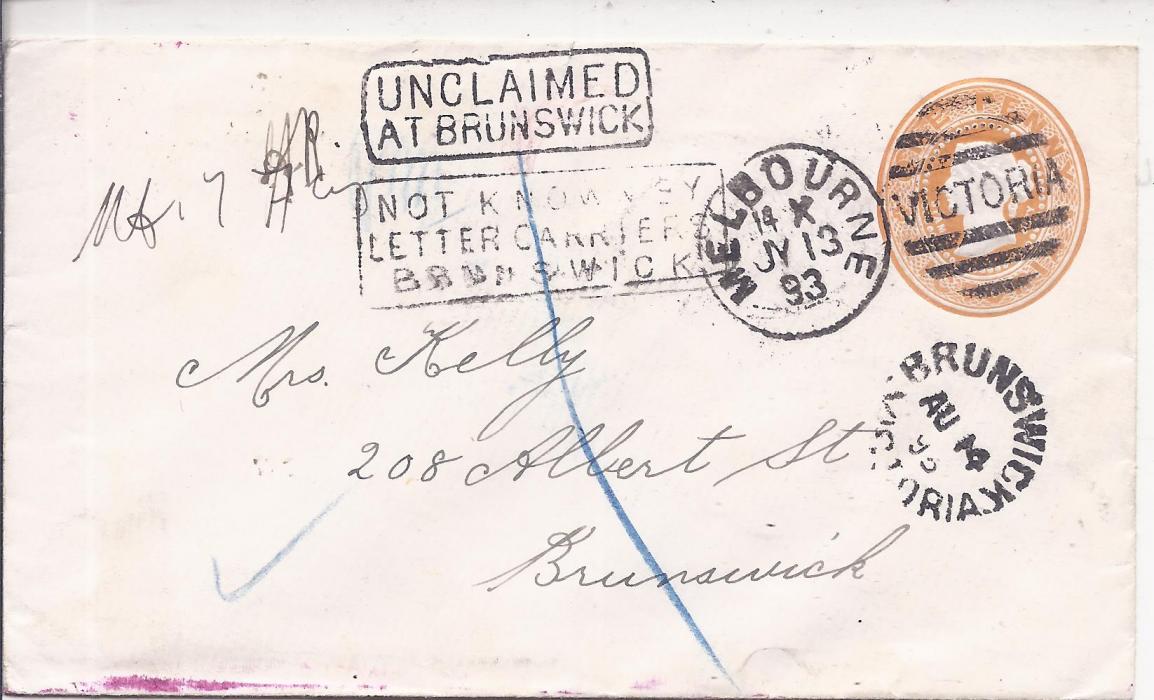 UNCLAIMED
AT BRUNSWICK
NOT KNOWN BY
LETTER CARRIERS
BRUNSWICK
MELBOURNE
14 X
JY 13
93
VICTORIA
BRUNSWICK
AU 14
93
VICTORIA
Mrs. Kelly
208 Albert St
Brunswick